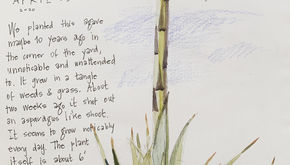 APRIL
2020
We planted this agave
maybe 10 years ago in
the corner of the yard,
unnoticable and unattended
to. It grew in a tangle
of weeds & grass. About
two weeks ago it shot out
an asparagus like shoot.
It seems to grow noticably
every day. The plant
itself is about 6'